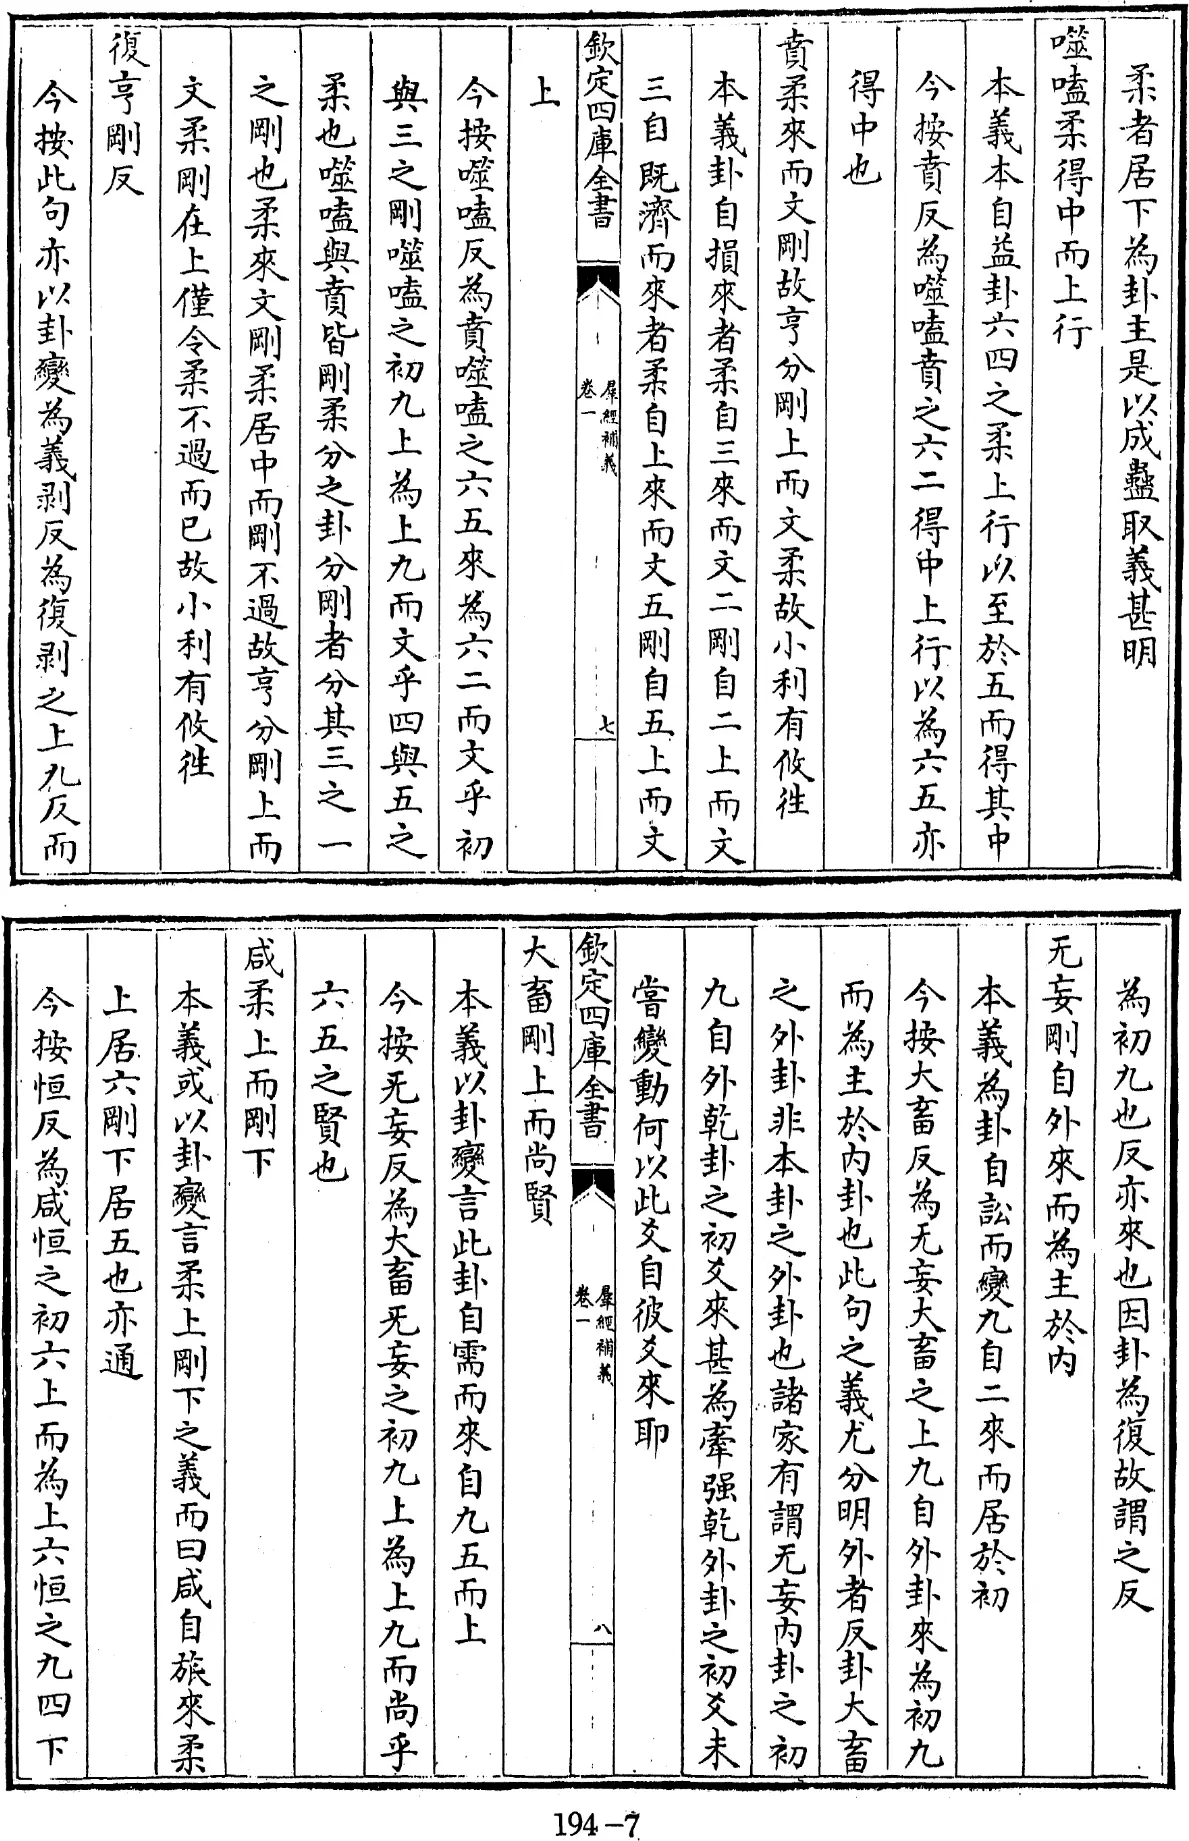 柔者居下為卦主是以成蠱取義甚明
噬嗑柔得中而上行
本義本自益卦六四之柔上行以至於五而得其中
今按賁反為噬嗑賁之六二得中上行以為六五亦
得中也
賁柔來而文剛故亨分剛上而文柔故小利有攸徃
本義卦自損來者柔自三來而文二剛自二上而文
三自既濟而來者柔自上來而文五剛自五上而文
欽定四庫全書
羣經補義
卷一
七
上
今按噬嗑反為賁噬嗑之六五來為六二而文乎初
與三之剛噬嗑之初九上為上九而文乎四與五之
柔也噬嗑與賁皆剛柔分之卦分剛者分其三之一
之剛也柔來文剛柔居中而剛不過故亨分剛上而
文柔剛在上僅令柔不過而已故小利有攸徃
復亨剛反
今按此句亦以卦變為義剥反為復剥之上九反而
為初九也反亦來也因卦為復故謂之反
无妄剛自外來而為主於内
本義為卦自訟而變九自二來而居於初
今按大畜反為无妄大畜之上九自外卦來為初九
而為主於内卦也此句之義尤分明外者反卦大畜
之外卦非本卦之外卦也諸家有謂无妄内卦之初
九自外乾卦之初爻來甚為牽强乾外卦之初爻未
嘗變動何以此爻自彼爻來耶
欽定四庫全書
羣經補義
卷一
八
大畜剛上而尚賢
本義以卦變言此卦自需而來自九五而上
今按无妄反為大畜无妄之初九上為上九而尚乎
六五之賢也
咸柔上而剛下
本義或以卦變言柔上剛下之義而曰咸自旅來柔
上居六剛下居五也亦通
今按恒反為咸恒之初六上而為上六恒之九四下
194-7